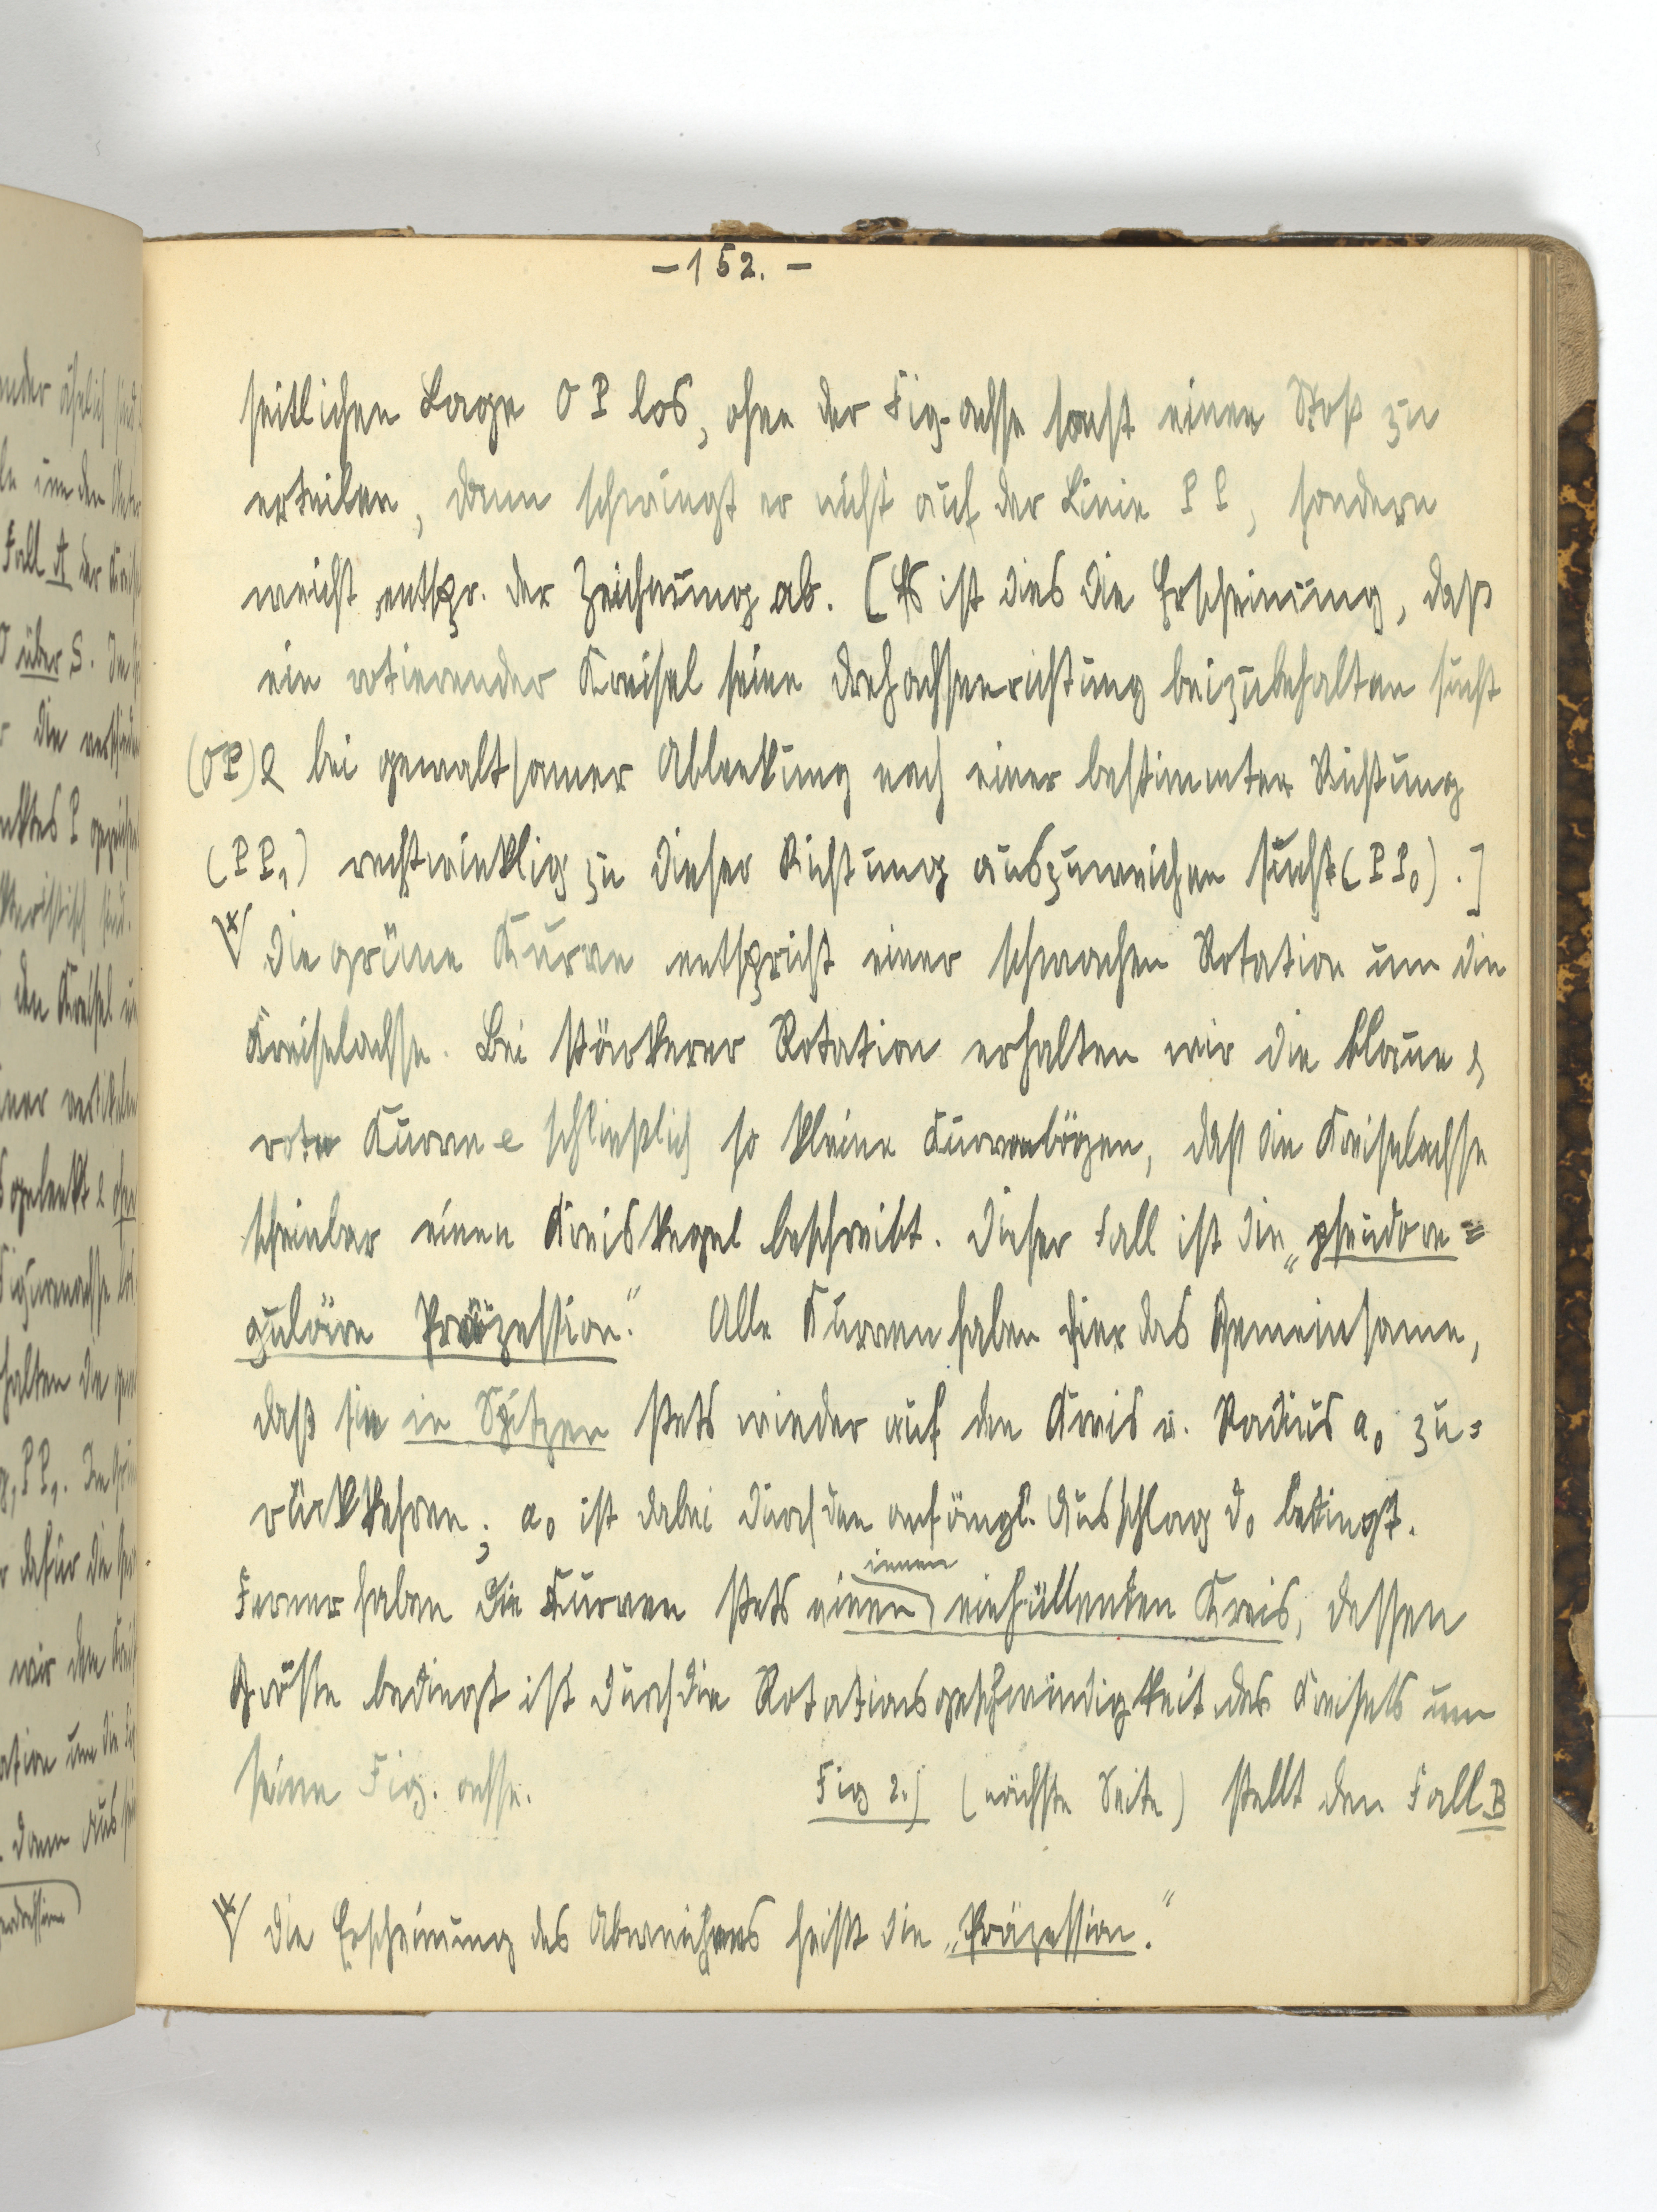 – 152. –
seitlichen Lage O P los, ohne der Fig. achse sonst einen Stoß zu
erteilen, dann schwingt er nicht auf der Linie P P, sondern
weicht entspr. der Zeichnung ab. [Es ist dies die Erscheinung, daß
ein rotierender Kreisel seine Drehachsenrichtung beizubehalten sucht
(OP) & bei gewaltsamer Ablenkung nach einer bestimmten Richtung
(P P₁) rechtwinklig zu dieser Richtung auszuweichen sucht (P P₀).]
*/ Die grüne Kurve entspricht einer schwachen Rotation um die
Kreiselachse. Bei stärkerer Rotation erhalten wir die blaue &
rote Kurve & schließlich so kleine Kurvenbögen, daß die Kreiselachse
scheinbar einen Kreiskegel beschreibt. Dieser Fall ist die „pseudore=
guläre Präzession.“ Alle Kurven haben hier das Gemeinsame,
daß sie in Spitzen stets wieder auf den Kreis v. Radius a₀ zu=
rückkehren; a₀ ist dabei durch den anfängl. Ausschlag ϑ₀ bedingt.
innen
Ferner haben die Kurven stets einen einhüllenden Kreis, dessen
Größe bedingt ist durch die Rotationsgeschwindigkeit des Kreisels um
seine Fig. achse. Fig 2.) (nächste Seite) stellt den Fall B
*/ Die Erscheinung des Abweichens heißt die „Präzession.“
ander ähnlich sind
Fall A der
O über S.
halten die
wir den
dann aus